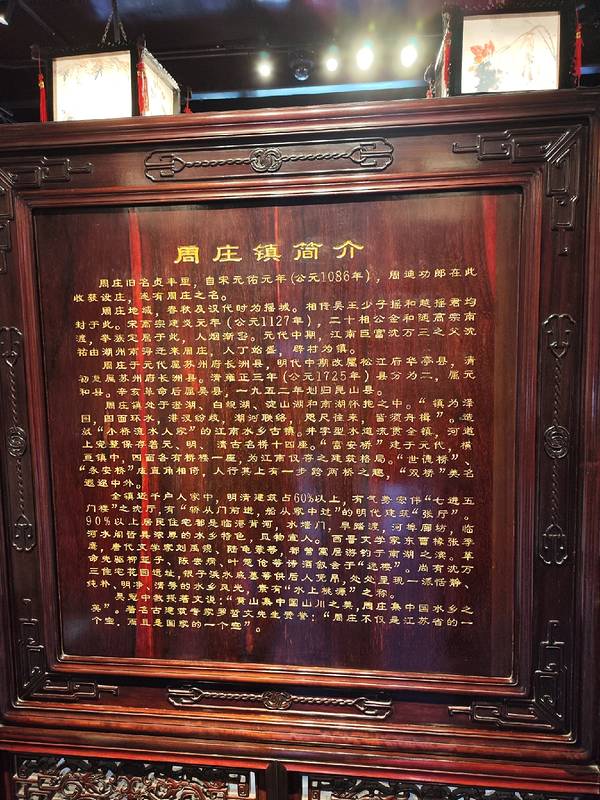 周庄镇简介
周庄旧名贞丰里，自宋元佑元年(公元1086年)，周迪功郎在此
收获设庄，遂有周庄之名。
周庄地域，春秋及汉代时为摇城。相传吴王少子摇和越摇君均
封于此。宋高宗建炎元年(公元1127年)，二十相公金和随高宗南
渡，举族定居于此，人烟渐密。元代中期，江南巨富沈万三之父沈
祐由湖州南浔迁来周庄，人丁始盛，辟村为镇。
周庄于元代属苏州府长洲县，明代中期改属松江府华亭县，清
初复属苏州府长洲县。清雍正三年(公元1725年)县分为二，属元
和县。辛亥革命后属吴县，一九五二年划归昆山县。
周庄镇处于澄湖、白蚬湖、淀山湖和南湖怀抱之中。“镇为泽
国，四面环水，港汊纷歧，湖河联络，咫尺往来，皆须舟楫”。造
就“小桥流水人家”的江南水乡古镇。井字型水道流贯全镇，河道
上完整保存着元、明、清古石桥十四座。“富安桥”建于元代，横
亘镇中，四面各有桥楼一座，为江南仅存之建筑格局。“世德桥”、
“永安桥”纵直角相倚，人行其上有一步跨两桥之趣，“双桥”美名
遐迩中外。
全镇近千户人家中，明清建筑占60%以上，有气势宏伟“七进五
门楼”之沈厅，有“轿从门前进，船从家中过”的明代建筑“张厅”。
90%以上居民住宅都是临港背河，水墙门，旱踏渡，河埠廊坊，临
河水阁皆具浓厚的水乡特色，且物宜人。西晋文学家东曹掾张季
鹰，唐代文学家刘禹锡、陆龟蒙等，都曾寓居游钓于南湖之滨。革
命先驱柳亚子、陈去病、叶楚伧等诗酒欢会于“迷楼”。尚有沈万
三住宅花园遗址，银子浜水底墓等供后人凭吊，处处呈现一派恬静、
纯朴、明净、清秀的水乡风光，素有“水上桃源”之称。
吴冠中教授著文说：“黄山集中国山川之美，周庄集中国水乡之
美”。著名古建筑专家罗哲文先生赞誉：“周庄不仅是江苏省的一
个宝，而且是国家的一个宝”。